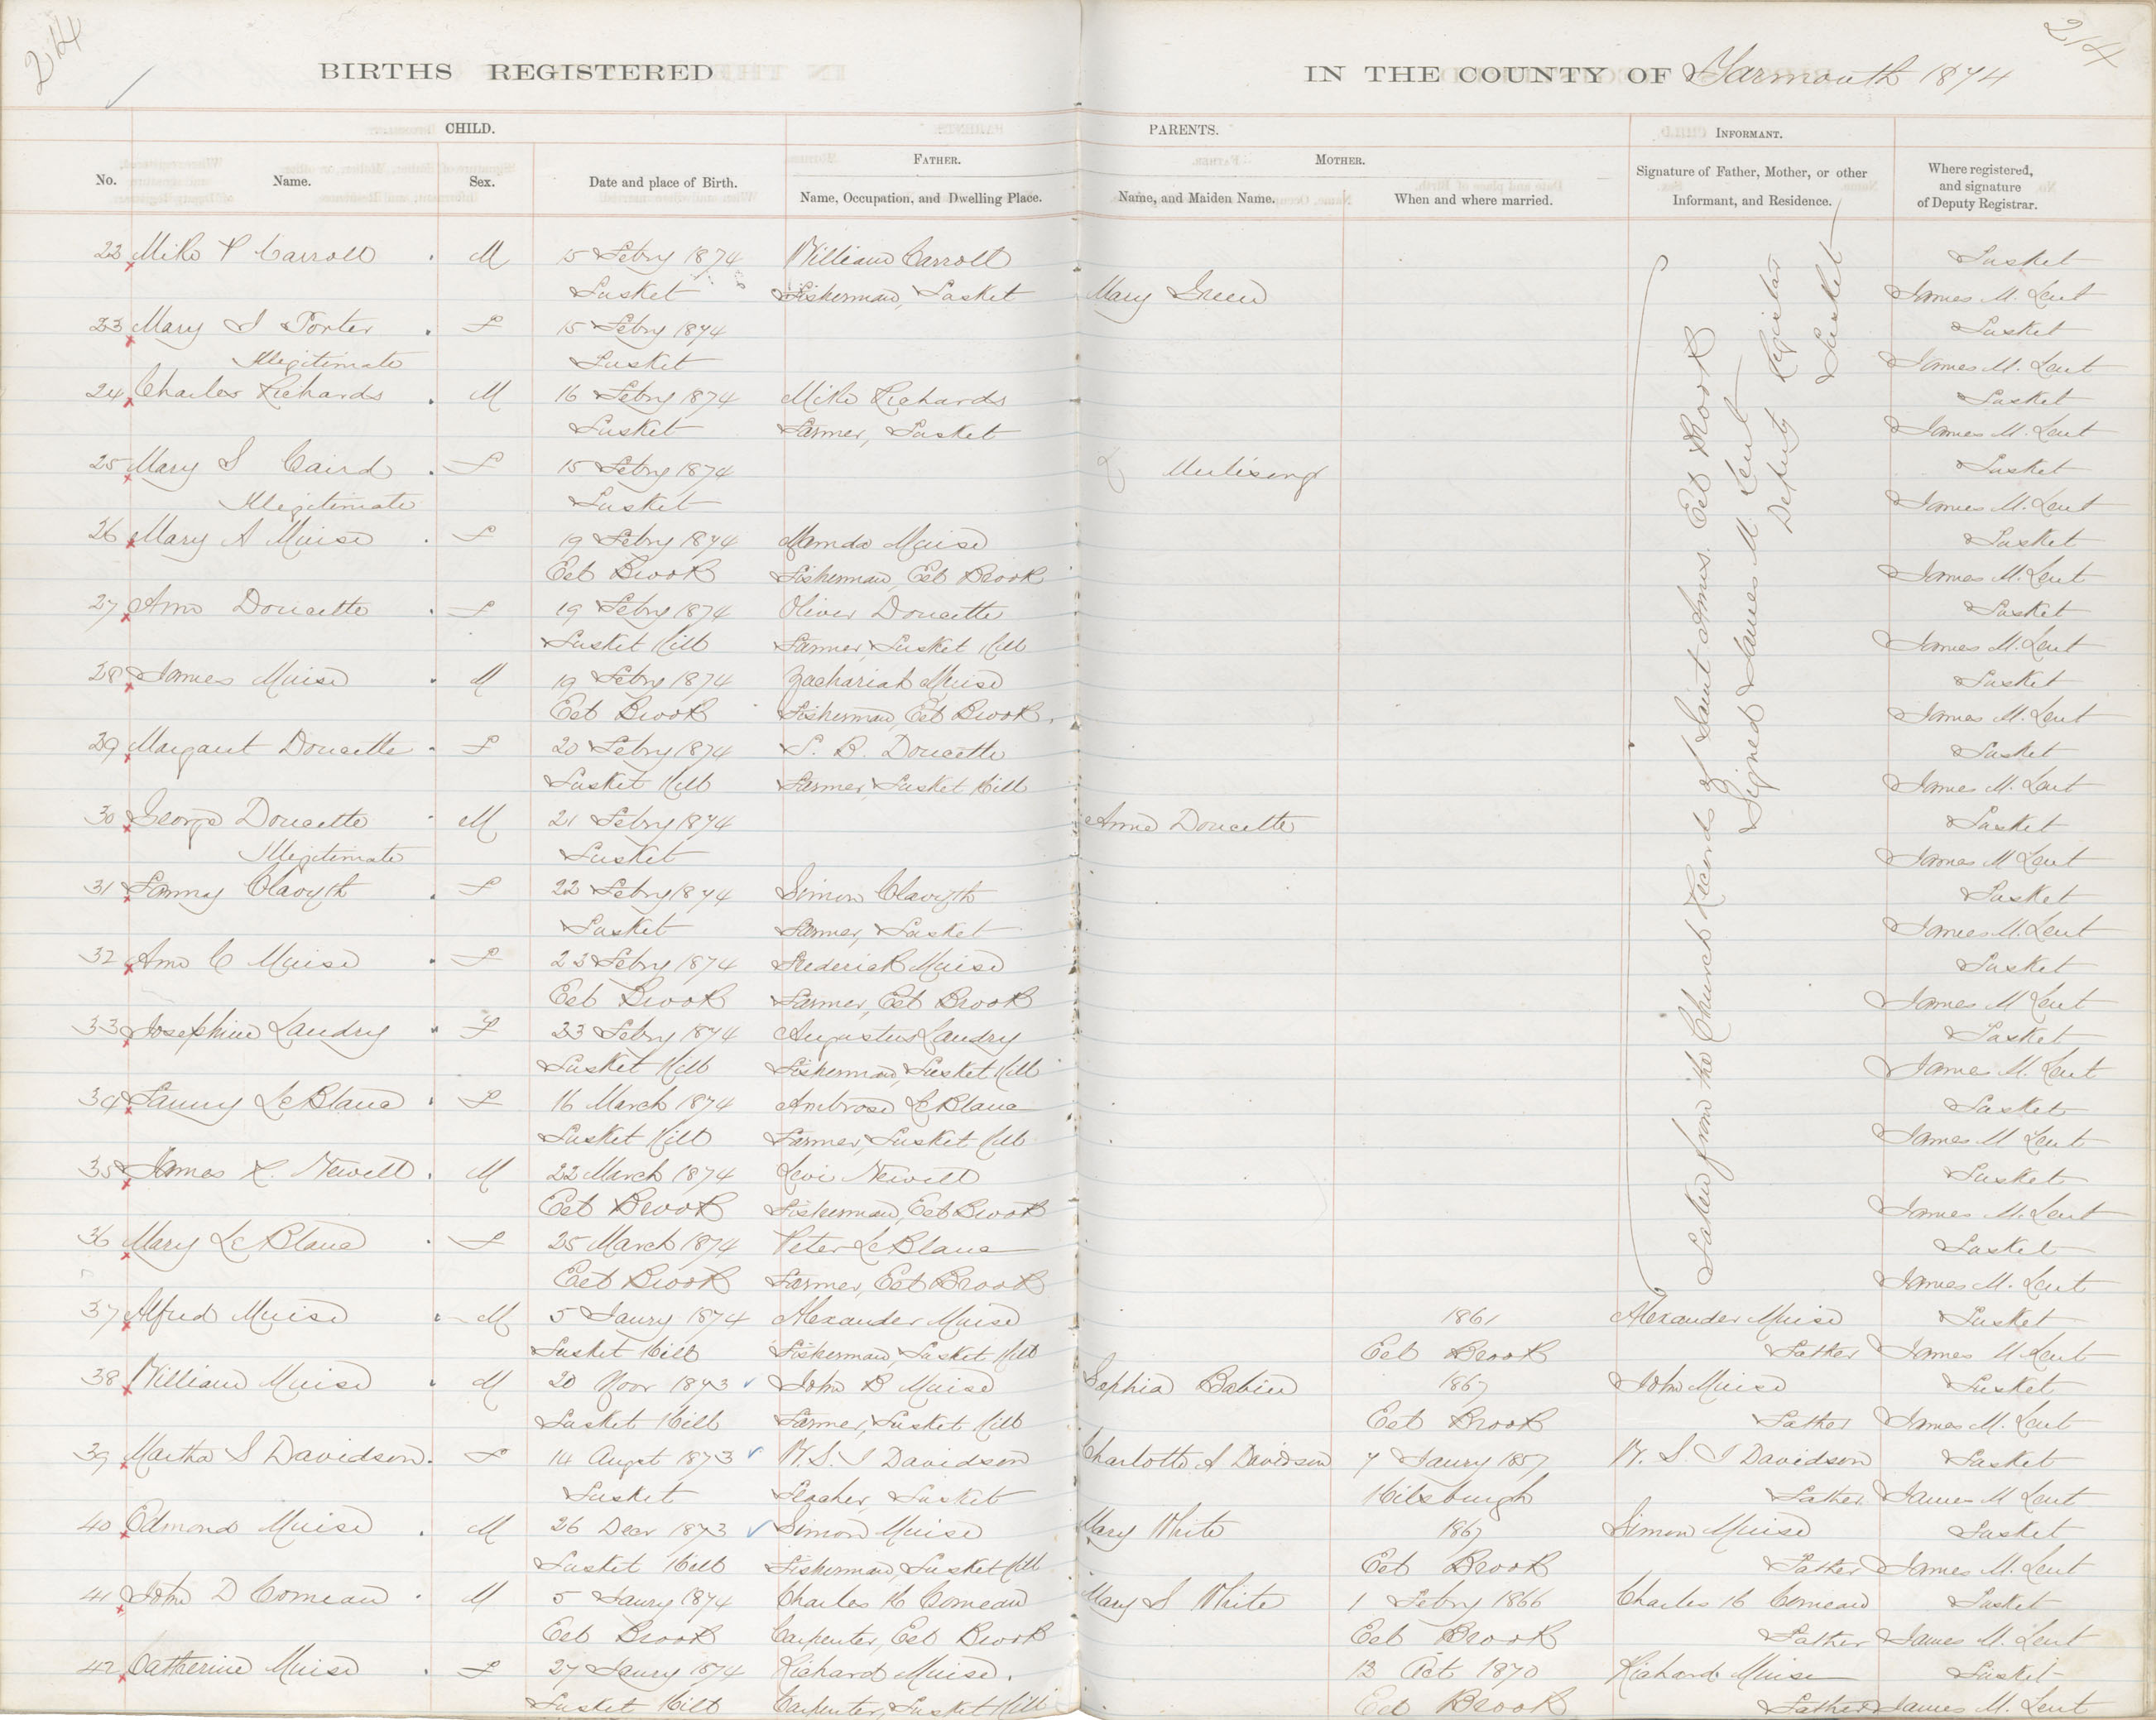 214
214
BIRTHS REGISTERED
IN THE COUNTY OF Yarmouth 1874
CHILD.
PARENTS.
INFORMANT.
FATHER.
MOTHER.
No.
Name.
Sex.
Date and place of Birth.
Name, Occupation, and Dwelling Place.
Name, and Maiden Name.
When and where married.
Signature of Father, Mother, or other Informant, and Residence.
Where registered, and signature of Deputy Registrar.
22 Mike P Carroll M 15 Febry 1874 William Carroll Tusket
Tusket Fisherman, Tusket Mary Green James M. Lent
23 Mary I Porter F 15 Febry 1874 Tusket
Illegitimate Tusket James M. Lent
24 Charles Richards M 16 Febry 1874 Mike Richards Tusket
Tusket Farmer, Tusket James M. Lent
25 Mary S Caird F 15 Febry 1874 Tusket
Illegitimate Tusket James M. Lent
26 Mary A Muise F 19 Febry 1874 Muise Tusket
Eel Brook Fisherman, Eel Brook James M. Lent
27 Ann Doucette F 19 Febry 1874 Oliver Doucette Tusket
Tusket Hill Farmer, Tusket Hill James M. Lent
28 James Muise M 19 Febry 1874 Zachariah Muise Tusket
Eel Brook Fisherman, Eel Brook James M. Lent
29 Margaret Doucette F 20 Febry 1874 S. B. Doucette Tusket
Tusket Hill Farmer, Tusket Hill James M. Lent
30 George Doucette M 21 Febry 1874 Anne Doucette Tusket
Illegitimate Tusket James M Lent
31 Fanny F 22 Febry 1874 Simon Tusket
Tusket Farmer, Tusket James M. Lent
32 Ann C Muise F 23 Febry 1874 Frederick Muise Tusket
Eel Brook Farmer, Eel Brook James M Lent
33 Josephine Landry F 23 Febry 1874 Augustus Landry Tusket
Tusket Hill Fisherman, Tusket Hill James M. Lent
34 Fanny LeBlanc F 16 March 1874 Ambrose LeBlanc Tusket
Tusket Hill Farmer, Tusket Hill James M Lent
35 James L. Newell M 22 March 1874 Levi Newell Tusket
Eel Brook Fisherman, Eel Brook James M. Lent
36 Mary LeBlanc F 25 March 1874 Peter LeBlanc Tusket
Eel Brook Farmer, Eel Brook James M. Lent
Taken from the Church Records of Saint Anns. Eel Brook
Signed James M. Lent
Deputy Registrar
Tusket
37 Alfred Muise M 5 Jaury 1874 Alexander Muise 1861 Alexander Muise Tusket
Tusket Hill Fisherman, Tusket Hill Eel Brook Father James M Lent
38 William Muise M 20 Novr 1873 John B Muise Sophia Babin 1867 John Muise Tusket
Tusket Hill Farmer, Tusket Hill Eel Brook Father James M. Lent
39 Martha S Davidson F 14 Augst 1873 W. S. J Davidson Charlotte A Davidson 7 Jaury 1857 W. S. J Davidson Tusket
Tusket Teacher, Tusket Father James M Lent
40 Edmond Muise M 26 Decr 1873 Simon Muise Mary White 1867 Simon Muise Tusket
Tusket Hill Fisherman, Tusket Hill Eel Brook Father James M. Lent
41 John D Comeau M 5 Jaury 1874 Charles H Comeau Mary S White 1 Febry 1866 Charles H Comeau Tusket
Eel Brook Carpenter, Eel Brook Eel Brook Father James M. Lent
42 Catherine Muise F 27 Jaury 1874 Richard Muise. 13 Oct 1870 Richard Muise Tusket
Tusket Hill Carpenter, Tusket Hill Eel Brook Father James M. Lent